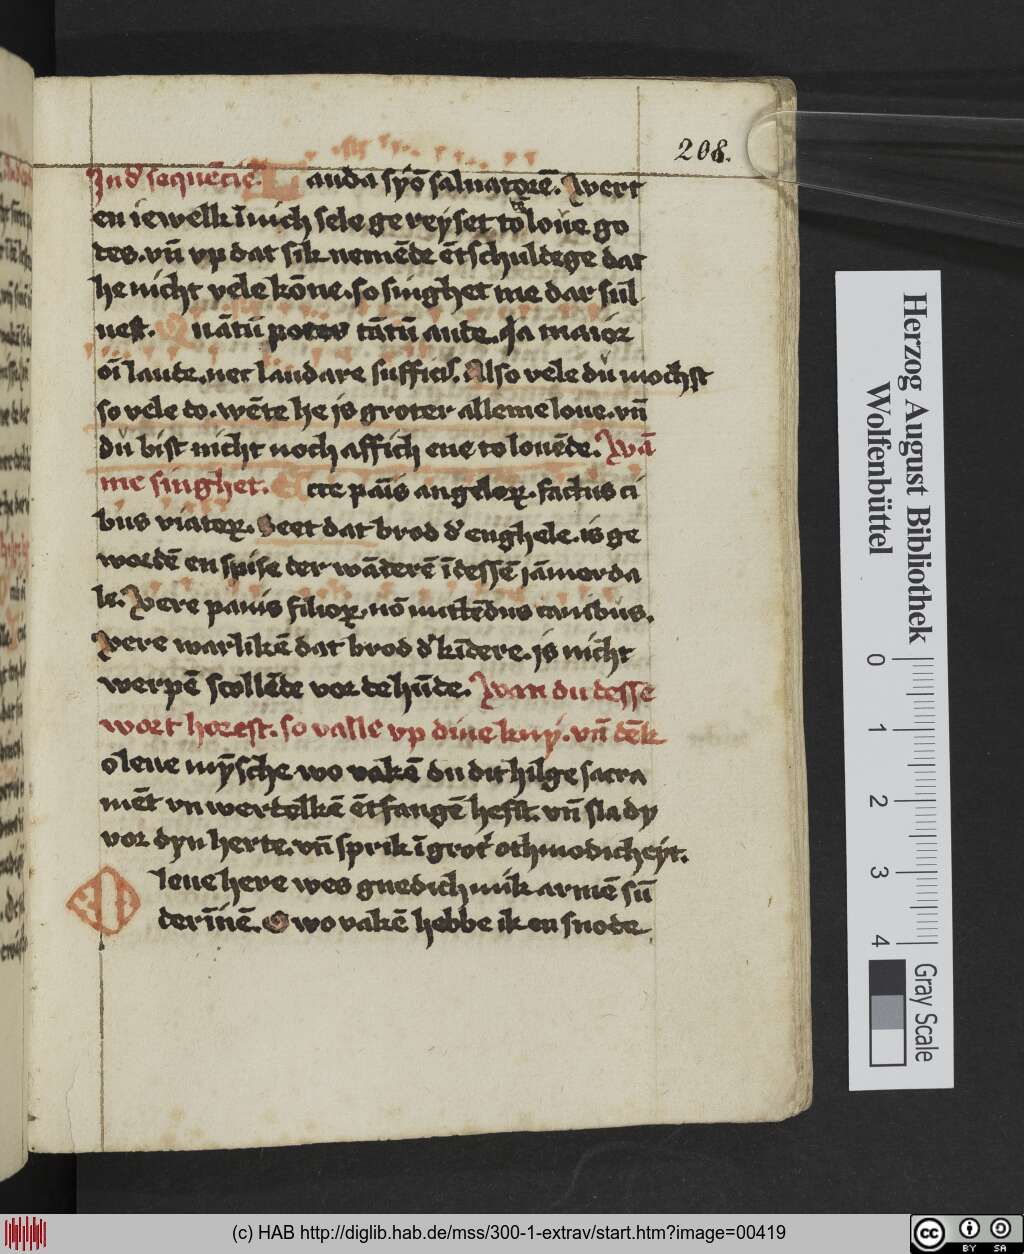 208.
Jn d' sequēcie. Lauda syō saluatorē. Wert
en iewelk īnich sele ge reyset to loue go
des. vn̄ vp dat sik nemēde ētschuldege dat
he nicht vele kōne. so singhet me dar sul
uest. Quātū potes tātū aude. Qia maior
oī laude. nec laudare suffic'. Also vele du mochst
so vele do. wēte he is groter alleme loue. vn̄
du bist nicht noch afflich ene to louēde. Wā
me singhet. Ecce pāis angeloꝝ. factus ci
bus viatoꝝ. Seet dat brod d' enghele. is ge
wordē en spise der wāderē ī dessē iāmerda
le. Vere panis filioꝝ. nō mittēdus canibus.
Vere warlikē dat brod d' kīdere. is nicht
werpē scollēde vor de hūde. Wan du desse
wort horest. so valle vp dine kny. vn̄ dēk
o leue mȳsche wo vakē du dit hilge sacra
mēt vn werdelkē ētfangē hefst. vn̄ sla dy
vor dyn herte. vn̄ sprik ī grot' othmodicheyt.
O leue here wes gnedich mik armē sū
derīnē. O wo vakē hebbe ik en snode
Herzog August Bibliothek
Wolfenbüttel
0 1 2 3 4
Gray Scale
(c) HAB http://diglib.hab.de/mss/300-1-extrav/start.htm?image=00419
cc BY SA